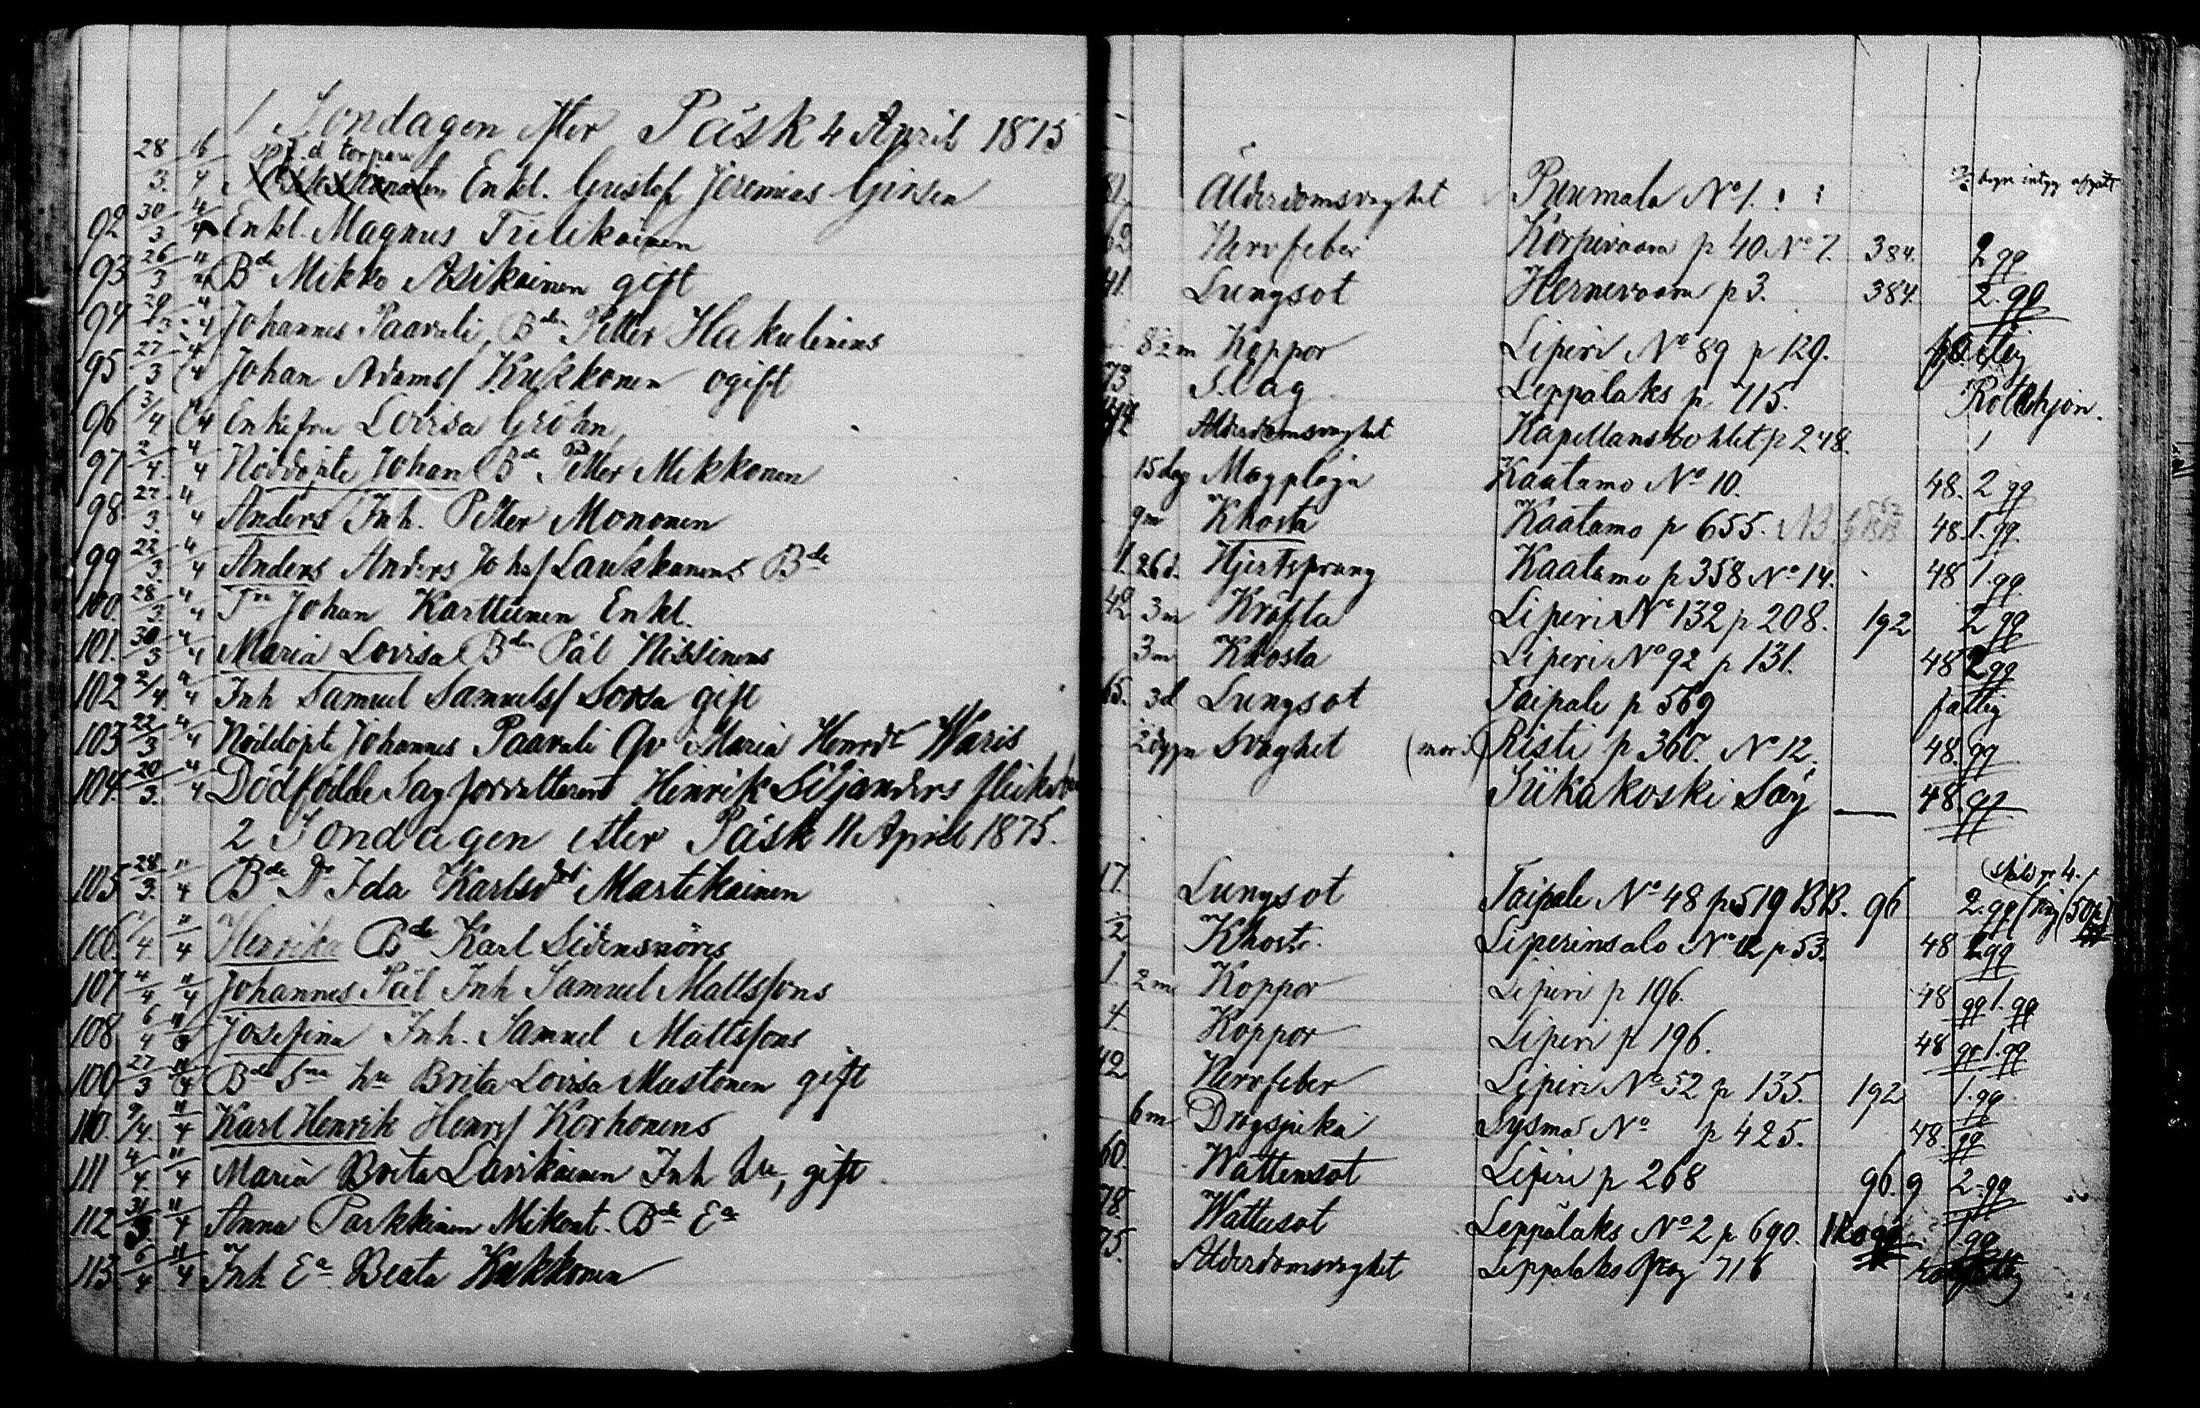 1 Söndagen efter Påsk 4 April 1875
28/3 torpare Enkl. Gustaf Jeremias Ålderdomsvaghet Puumala No 1.
92 30/3 4/4 Enkl. Magnus Tiilikainen 62 Nervfeber Korpivaara p 40 No 7. 384. 2 gg
93 26/3 Bde Mikko Asikainen gift 41 Lungsot Hernevaara p 3. 384 2. gg
94 29/3 4/4 Johannes Paavali, Bden Petter Hakulinens 8 2 m Koppor Liperi No 89 p 129.
95 27/3 4/4 Johan Adamsf Kukkonen ogift 73 Slag Leppälaks p 715. Rotehjon.
96 3/4 4/4 Enkefru Lovisa Gröhn, Ålderdomsvaghet Kapellansbohlet p 248. 1
97 2/4 4/4 Nöddöpte Johan Bde Petter Mikkonen 15 dag Magplåga Kaatamo No 10. 48. 2 gg
98 27/3 4/4 Anders Inh. Petter Mononen 9m Khosta Kaatamo p 655. 48. 1. gg.
99 22/3 4/4 Anders Anders Johsf Laukkanens Bde 1. 26 d. Hjertsprång Kaatamo p 358 No 14. 48 1. gg
100. 28/3 4/4 Johan Karttunen Enkl. 42 3m Kräfta Liperi No 132 p 208. 192 2 gg
101. 30/3 4/4 Maria Lovisa Bden Pål Nissinens 3m Khosta Liperi No 92 p 131. 48 2 gg
102 2/4 4/4 Inh Samuel Samuelsf Sorsa gift 65. 3d Lungsot Taipale p 569 fattig
103 22/3 4/4 Nöddöpte Johannes Paavali Qv Maria Henrdr Waris 2 dygn Svaghet Risti p 360. No 12. 48. gg
104. 20/3. 4/4 Dödfödde Sagförvalteren Henrik Siljanders flickebarn Siikakoski Såg — 48. gg
2 Söndagen efter Påsk 11 April 1875.
105 28/3. 11/4 Bde Dr Ida Karlsdr Martikainen 17. Lungsot Taipale No 48 p 519 BB. 96 2. gg
106. 11/4 Henrika Bde Karl Sidensnörs Khosta. Liperinsalo No 12 p. 53. 48 2 gg
107 4/4 11/4 Johannes Pål Inh Samuel Mattsfons 1. 2 m Koppor Liperi p 196. 48 gg 1. gg
108 6/4 11/4 Josefina Inh. Samuel Mattsfons 4 Koppor Liperi p 196. 48 gg 1. gg
109 27/3 11/4 Bde Sna hu Brita Lovisa Mustonen gift 42 Nervfeber Liperi No 52 p 135. 192 1. gg.
110. 9/4. 11/4 Karl Henrik Henrsf Korhonens 6 m Dragsjuka Sysmä No p 425. 48. gg
111 4/4. 11/4 Maria Brita Lavikainen Inh hu, gift. 60. Wattensot Liperi p 268 96. 9 2. gg
112 31/3. 11/4 Anna Parkkinen Mikont. Bde Ea 78. Wattusot Leppälaks No 2 p 690. 1 gg
113. 6/4 11/4 Inh Ea Beata Kukkonen 75. Ålderdomsvaghet Leppälaks 716